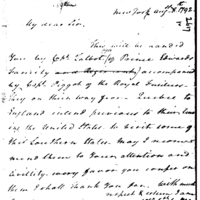 New York Augt 8th 1792
My dear Sir,
This will be handed
you by Capt. Talbot (of Prince Edwards
Family
accompanied
by Capt. Piggot of the Royal Fusiliers.
They on their way from Quebec to
England intend previous to their lea
ving the United States to visit some of
the Southern States. May I recom
mend them to your attention and
Civility. Every favor you confer on
them I shall thank you for. With much
respect & esteem I am